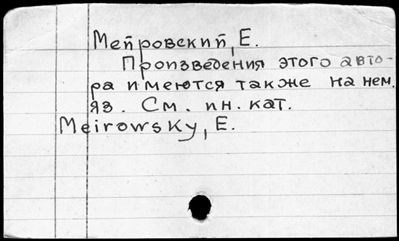 Мейровский, Е.
Произведения этого авто-
ра имеются также на нем.
яз. См. ин. кат.
Meirowsky, E.